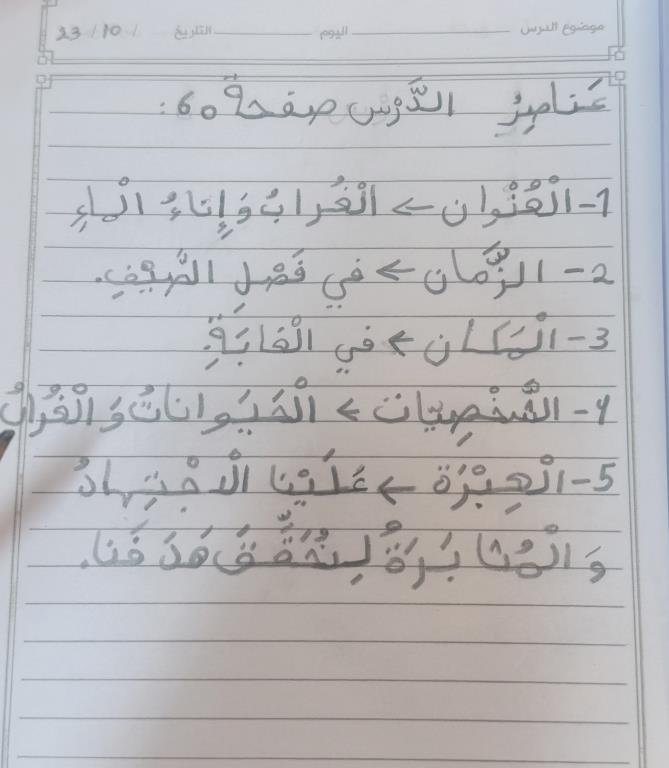 موضوع الدرس ــــــــــ اليوم ــــــــــ التاريخ / 10 / 23
عَناصِرُ الدَّرْسِ صفحة 60 :
1- الْعُنْوان ← الْغُرابُ وَإِناءُ الْماءِ
2- الزَّمان ← في فَصْلِ الصَّيْفِ.
3- الْمَكان ← في الْغابَةِ.
4- الشَّخْصِيّات ← الْحَيَواناتُ وَالْغُرابُ
5- الْعِبْرَة ← عَلَيْنا الْاجْتِهادُ
وَ الْمُثابَرَةُ لِنُحَقِّقَ هَدَفَنا.